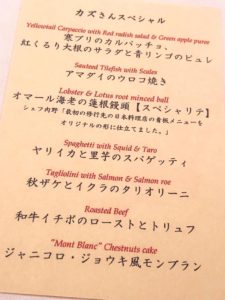 カズさんスペシャル
Yellowtail Carpaccio with Red radish salad & Green apple puree
寒ブリのカルパッチョ、
紅くるり大根のサラダと青リンゴのピュレ
Sauteed Tilefish with Scales
アマダイのウロコ焼き
Lobster & Lotus root minced ball
オマール海老の蓮根饅頭【スペシャリテ】
シェフ内野「最初の修行先の日本料理店の看板メニューを
オリジナルの形に仕立てました。」
Spaghetti with Squid & Taro
ヤリイカと里芋のスパゲッティ
Tagliolini with Salmon & Salmon roe
秋ザケとイクラのタリオリーニ
Roasted Beef
和牛イチボのローストとトリュフ
"Mont Blanc" Chestnuts cake
ジャニコロ・ジョウキ風モンブラン